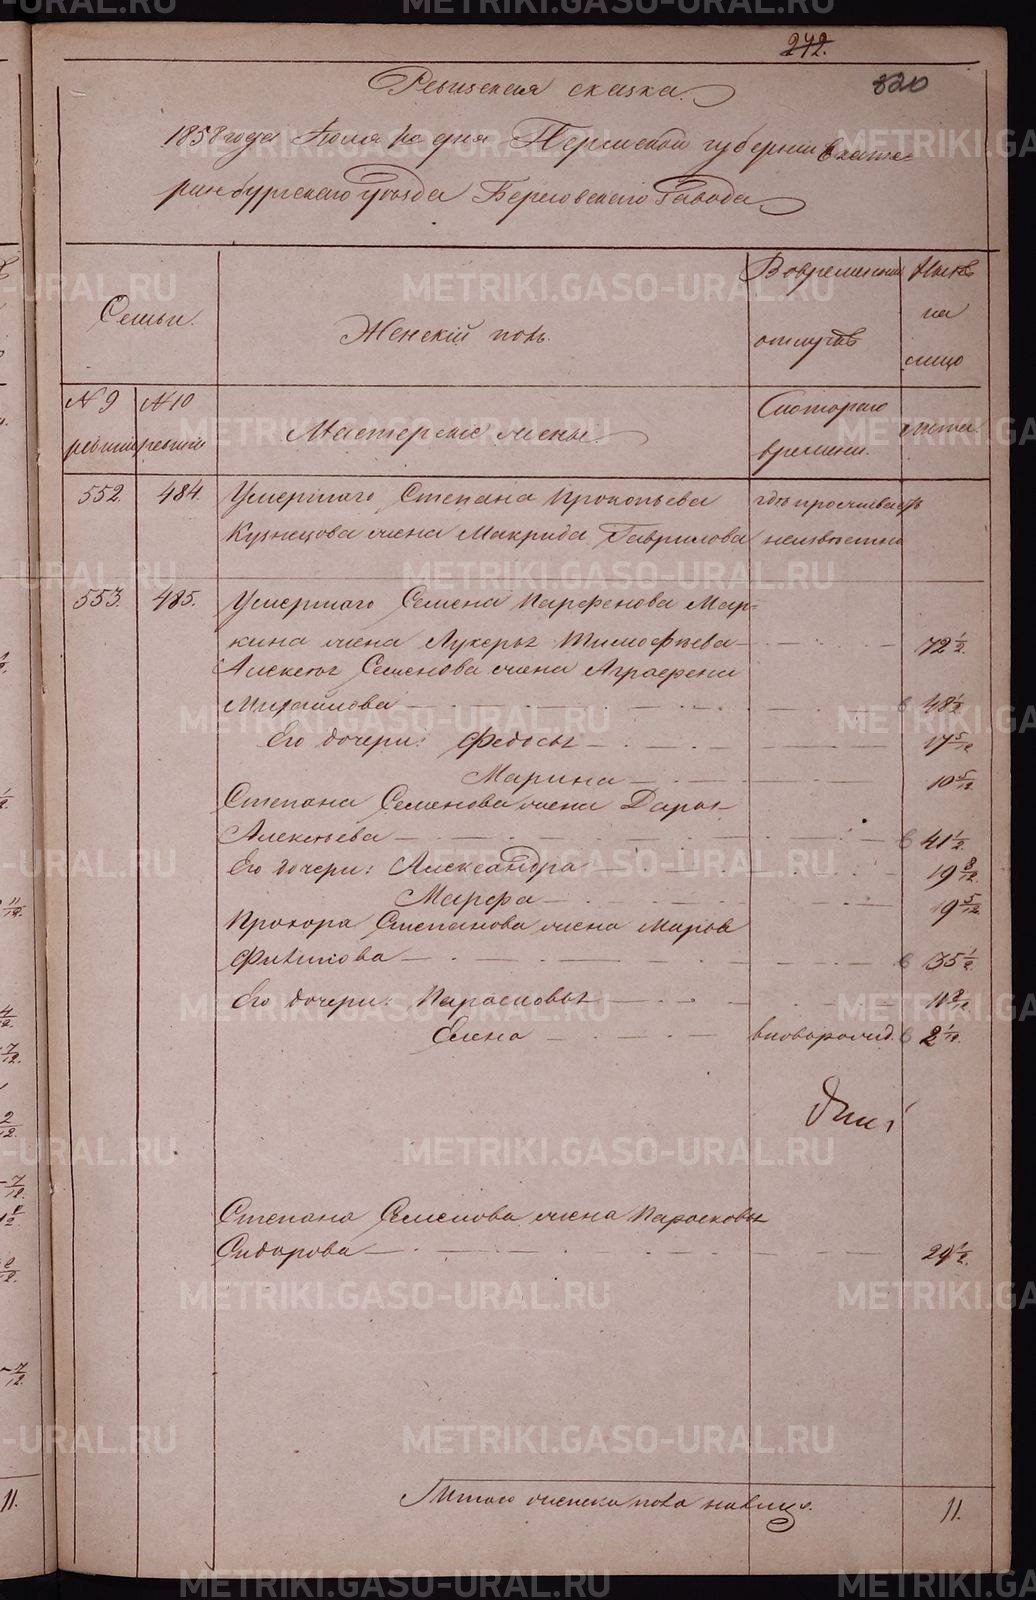 242.
820
Ревизская сказка.
1858 года Пермской губернии Екате-
ринбургского уѣзда Березовскаго Завода
Семьи.
Женскій полъ.
Во временной
отлучкѣ
На
лицо
№ 9
ревизіи
№ 10
ревизіи
Мастерскіе жены.
Съ котораго
времени.
лѣта
552. 484. Умершаго Степана Прокопьева где проживаетъ
Кузнецова жена Макрида Гаврилова неизвѣстно
553. 485. Умершаго Семена Парфенова Мар-
кина жена Лукерья Тимофѣева 72 1/2.
Алексѣя Семенова жена Аграфена
Михайлова 48 1/2
Его дочери: Федосья 17 5/12
Марина 10 5/12.
Степана Семенова жена Дарья
Алексѣева 41 1/2.
Его дочери: Александра 19 8/12.
Марфа 19 5/12.
Прохора Степанова жена Марфа
Филипова 35 1/2.
Его дочери: Парасковья 11 8/12
Елена вновь рожд. 2 1/12.
Степана Семенова жена Парасковья
Сидорова 29 1/2.
Итого женска пола налицо. 11.
11.
METRIKI.GASO-URAL.RU